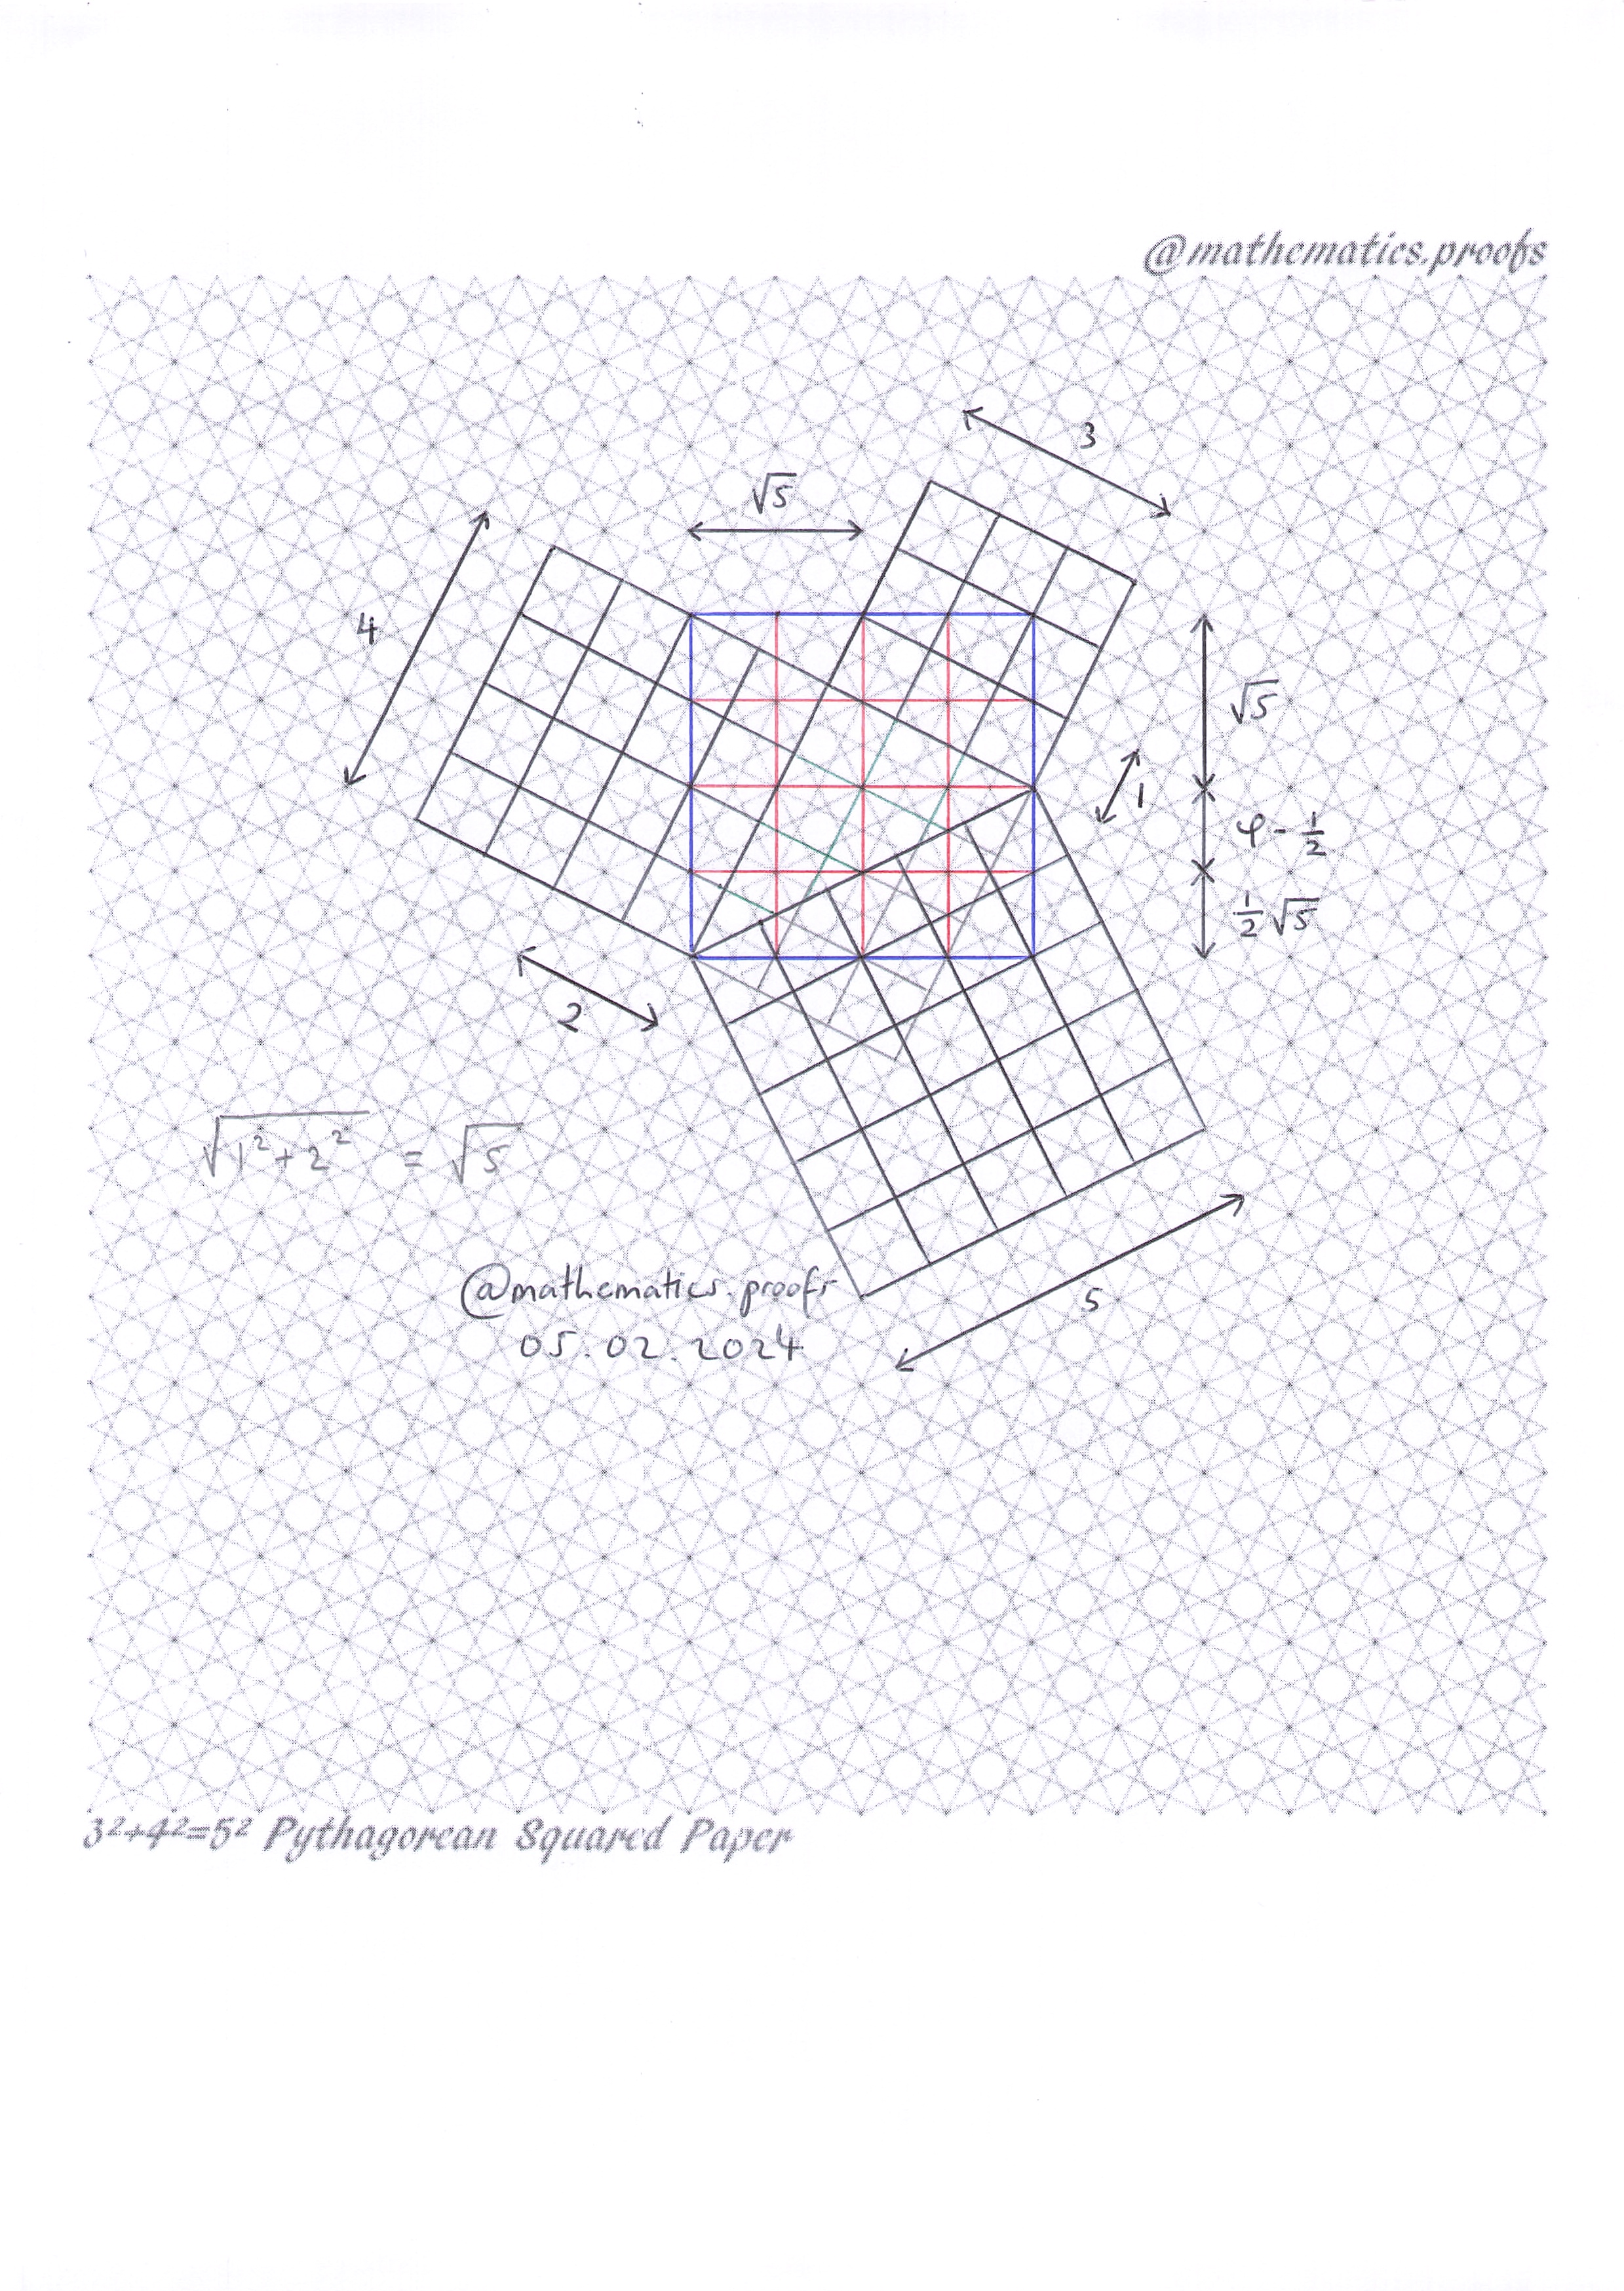 @mathematics.proofs
3
√5
4
√5
1
φ - 1/2
1/2 √5
2
√1²+2² = √5
@mathematics.proofs
5
05.02.2024
3²+4²=5² Pythagorean Squared Paper